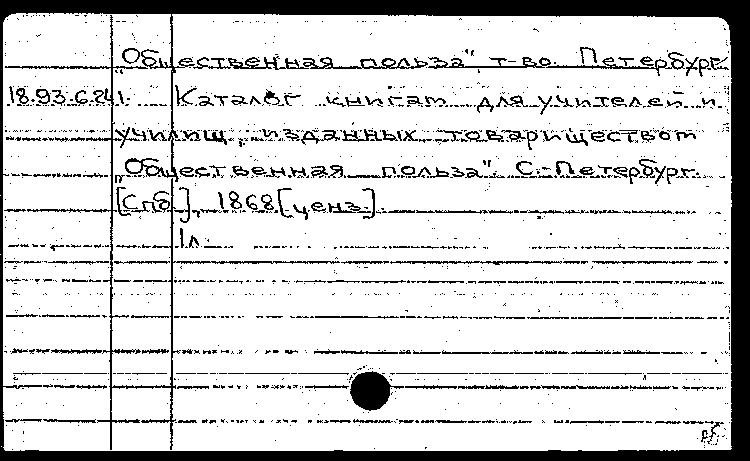 „Общественная польза", т-во. Петербург.
18.93.6.241. Каталог книгам для учителей и
училищ, изданных товариществом
„Общественная польза". С.-Петербург.
[Спб.], 1868 [ценз.].
1л.